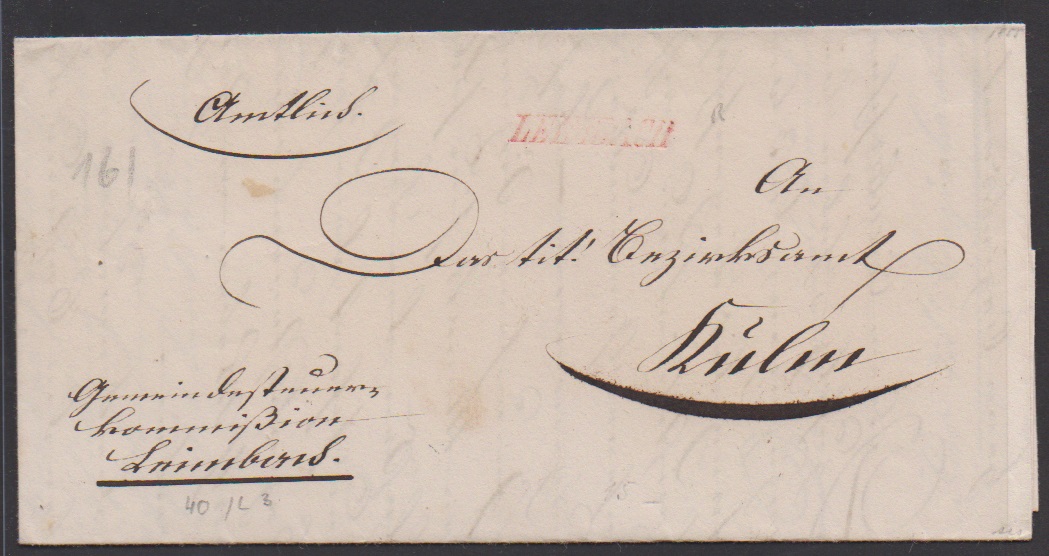 Amtlich.
LEIMBACH
161
An
Das tit. Bezirksamt
Kulm
Gemeindesteuer=
kommißion
Leimbach.
40 /L 3
15 —